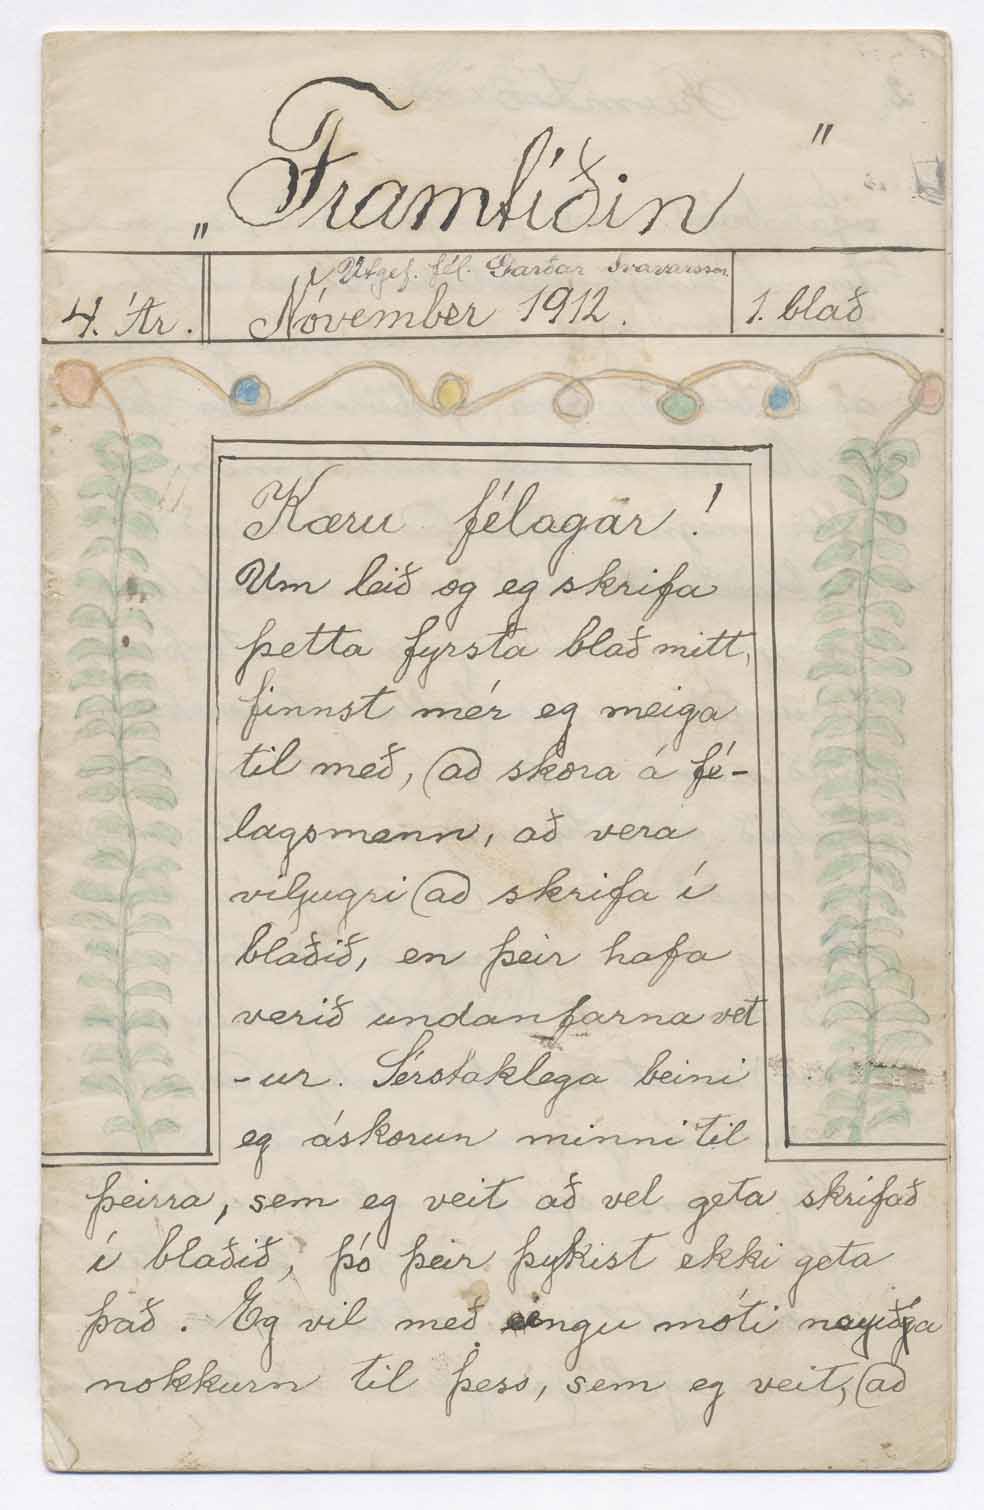 „Framtíðin"
Útgef. fél. Garðar Svavarsson.
4. Ár. Nóvember 1912. 1. blað
Kæru félagar!
Um leið og eg skrifa
þetta fyrsta blað mitt,
finnst mér eg meiga
til með, að skora á fé-
lagsmenn, að vera
viljugri að skrifa í
blaðið, en þeir hafa
verið undanfarna vet
-ur. Sérstaklega beini
eg áskorun minni til
þeirra, sem eg veit að vel geta skrifað
í blaðið, þó þeir þykist ekki geta
það. Eg vil með eingu móti
nokkurn til þess, sem eg veit, að